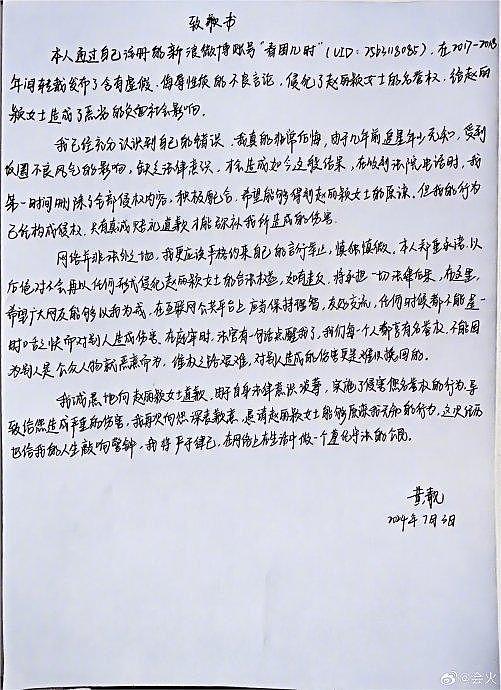 致歉书
本人通过自己注册的新浪微博账号“看困儿时”(UID:2563118085),在2017-2018
年间转载发布了含有虚假、侮辱性质的不良言论,侵犯了赵丽颖女士的名誉权,给赵丽
颖女士造成了恶劣的负面社会影响。
我已经充分认识到自己的错误,我真的非常后悔,由于几年前追星年少无知,受到
饭圈不良风气的影响,缺乏法律意识,才会造成如今这般结果,在收到法院电话时,我
第一时间删除了全部侵权内容,积极配合,希望能够得到赵丽颖女士的原谅。但我的行为
已经构成侵权,只有真诚赔礼道歉才能弥补我所造成的伤害。
网络并非法外之地,我更应该严格约束自己的言行举止,慎独慎微。本人郑重承诺:以
后绝对不会再以任何形式侵犯赵丽颖女士的合法权益,如有违反,将承担一切法律后果。在这里,
希望广大网友能够以我为戒,在互联网公共平台上应当保持理智,友好交流,任何时候都不能逞一
时口舌之快而对别人造成伤害。在庭审时,法官有一句话点醒我了,我们每一个人都享有名誉权,不能因
为别人是公众人物就恶意而为,维权之路艰难,对别人造成的伤害更是难以挽回的。
我诚恳地向赵丽颖女士道歉,由于自身法律意识淡薄,实施了侵害您名誉权的行为,导
致给您造成严重的伤害,我再次向您深表歉意,恳请赵丽颖女士能够原谅我无知的行为,这次经历
也给我的人生敲响警钟,我将严于律己,在网络上在生活中做一个遵纪守法的公民。
黄靓
2024年7月3日
@会火